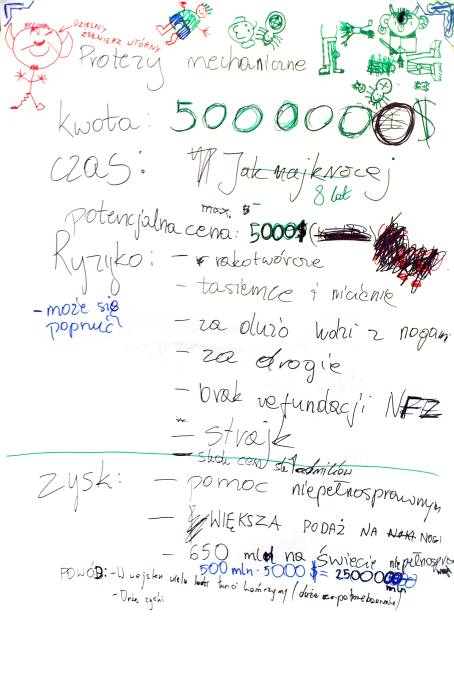 DZIELNY
ŻOŁNIERZ WTÓRNY
Protezy mechaniczne
kwota: 5000000$
czas: Jak najkrócej
8 lat
max. $
potencjalna cena: 5000$
Ryzyko: - rakotwórcze
- tasiemce i nicienie
- może się
popsuć
- za dużo ludzi z nogami
- za drogie
- brak refundacji NFZ
- strajk
- skok cen składników
zysk: - pomoc niepełnosprawnym
- WIĘKSZA PODAŻ NA NOGI
- 650 mln na świecie niepełnospr
500 mln · 5000 $ = 2500000 mln
POWÓD: - W wojsku wielu ludzi traci kończyny (duże zapotrzebowanie)
- Duże zyski